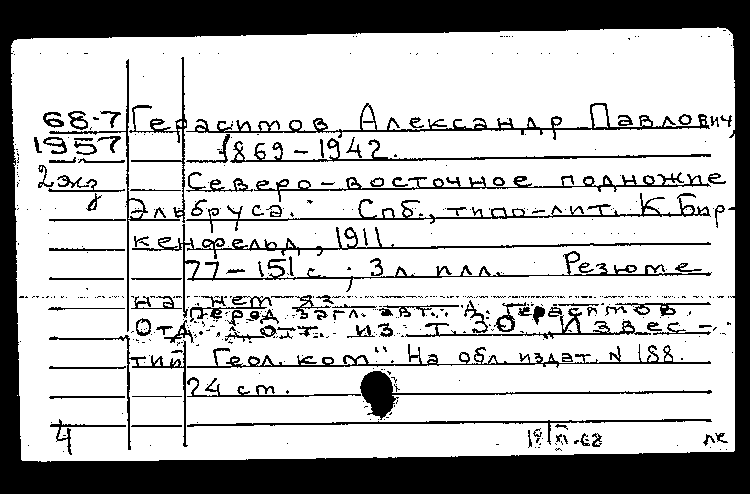 68-7 Герасимов, Александр Павлович,
1957 1869-1942.
2 экз Северо-восточное подножие
Эльбруса. Спб., типо-лит. К. Бир-
кенфельд, 1911.
77-151 с.; 3 л. илл. Резюме
на нем яз.
Перед загл. авт.: А. Герасимов.
Отд. отт. из т. 30 "Извес-
тий Геол. ком". На обл. издат. N 188.
24 см.
4 18/XI-68 лк